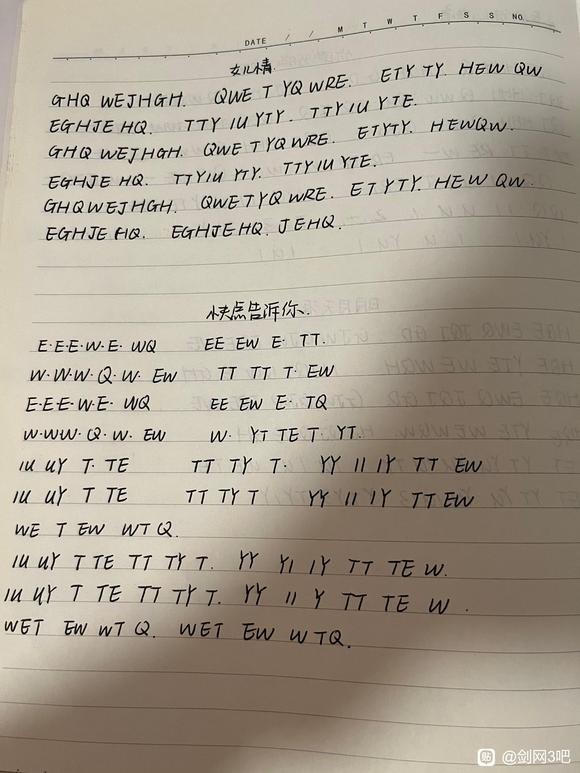 DATE / / M T W T F S S NO.
女儿情.
GHQ WEJHGH. QWE T YQ WRE. ETY TY. HEW QW
EGHJE HQ. TTY IU YTY. TTY IU YTE.
GHQ WEJHGH. QWE TYQ WRE. ETYTY. HEWQW.
EGHJE HQ. TTYIU YTY. TTYIU YTE.
GHQWEJHGH. QWETYQ WRE. ETYTY. HEW QW.
EGHJE HQ. EGHJEHQ. JEHQ.
快点告诉你.
E·E·E·W·E· WQ EE EW E· TT.
W·W·W·Q·W· EW TT TT T· EW
E·E·E·W·E· WQ EE EW E· TQ
W·W·W·Q·W· EW W· YT TE T· YT.
IU UY T· TE TT TY T· YY II IY TT EW
IU UY T TE TT TY T YY II IY TT EW
WE T EW WT Q.
IU UY T TE TT TY T. YY YI IY TT TE W.
IU UY T TE TT TY T. YY II Y TT TE W .
WET EW WT Q. WET EW WTQ.
贴 @剑网3吧